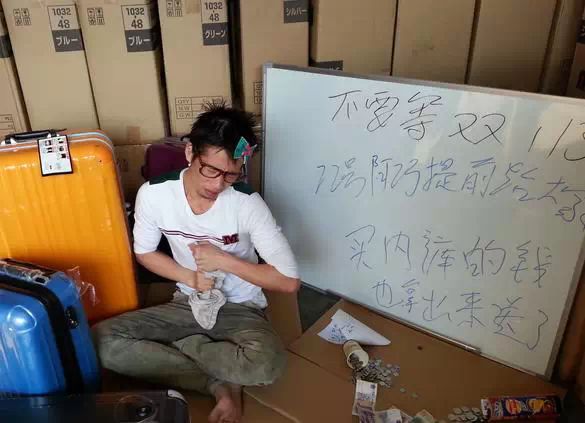 1032
48
ブルー
1032
48
ブルー
1032
48
グリーン
シルバー
不要等双11
号阿巧提前给大
买内裤的钱
也拿出来送了
M